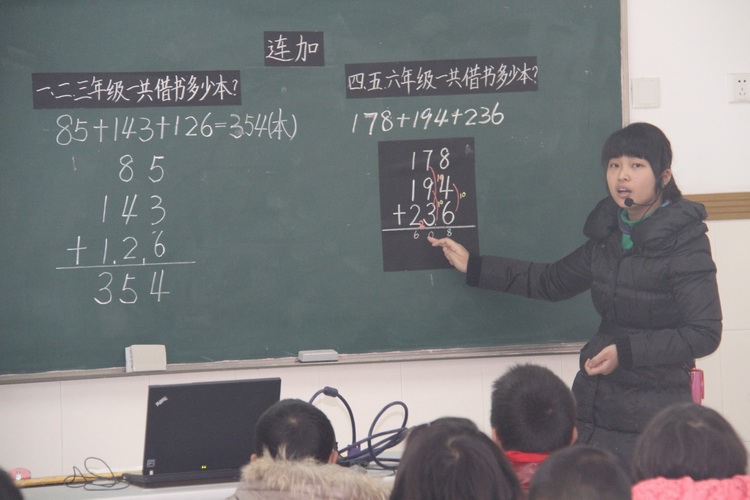 连加
一.二.三年级一共借书多少本?
85+143+126=354(本)
85
143
+126
354
四.五.六年级一共借书多少本?
178+194+236
178
194
+236
608